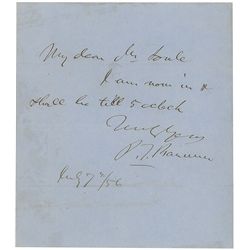 My dear Mr Soule
I am now in &
shall be till 5 oclock
Truly Yours
P. T. Barnum
July 7 /56